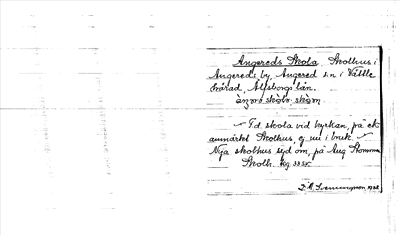 Angereds Skola. Skolhus i
Angereds by, Angered sn i Vättle
härad, Älfsborgs län.
— F.d. skola vid kyrkan, på ek.
anmärkt Skolhus, ej nu i bruk. —
Nya skolhus syd om, på Ang Stomme
Skolh.
1932